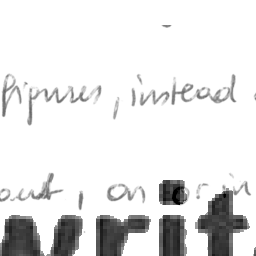 figures, instead
out, on or in
writ